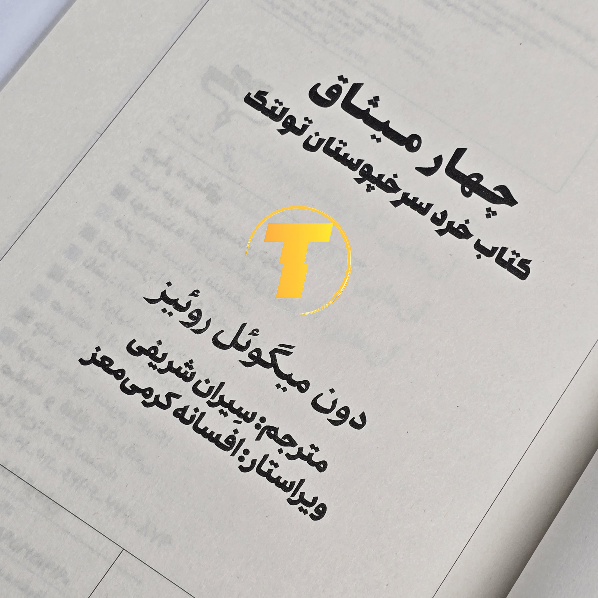 چهار میثاق
کتاب خرد سرخپوستان تولتک
T
دون میگوئل روئیز
مترجم: سیران شریفی
ویراستار: افسانه کرمی‌معز